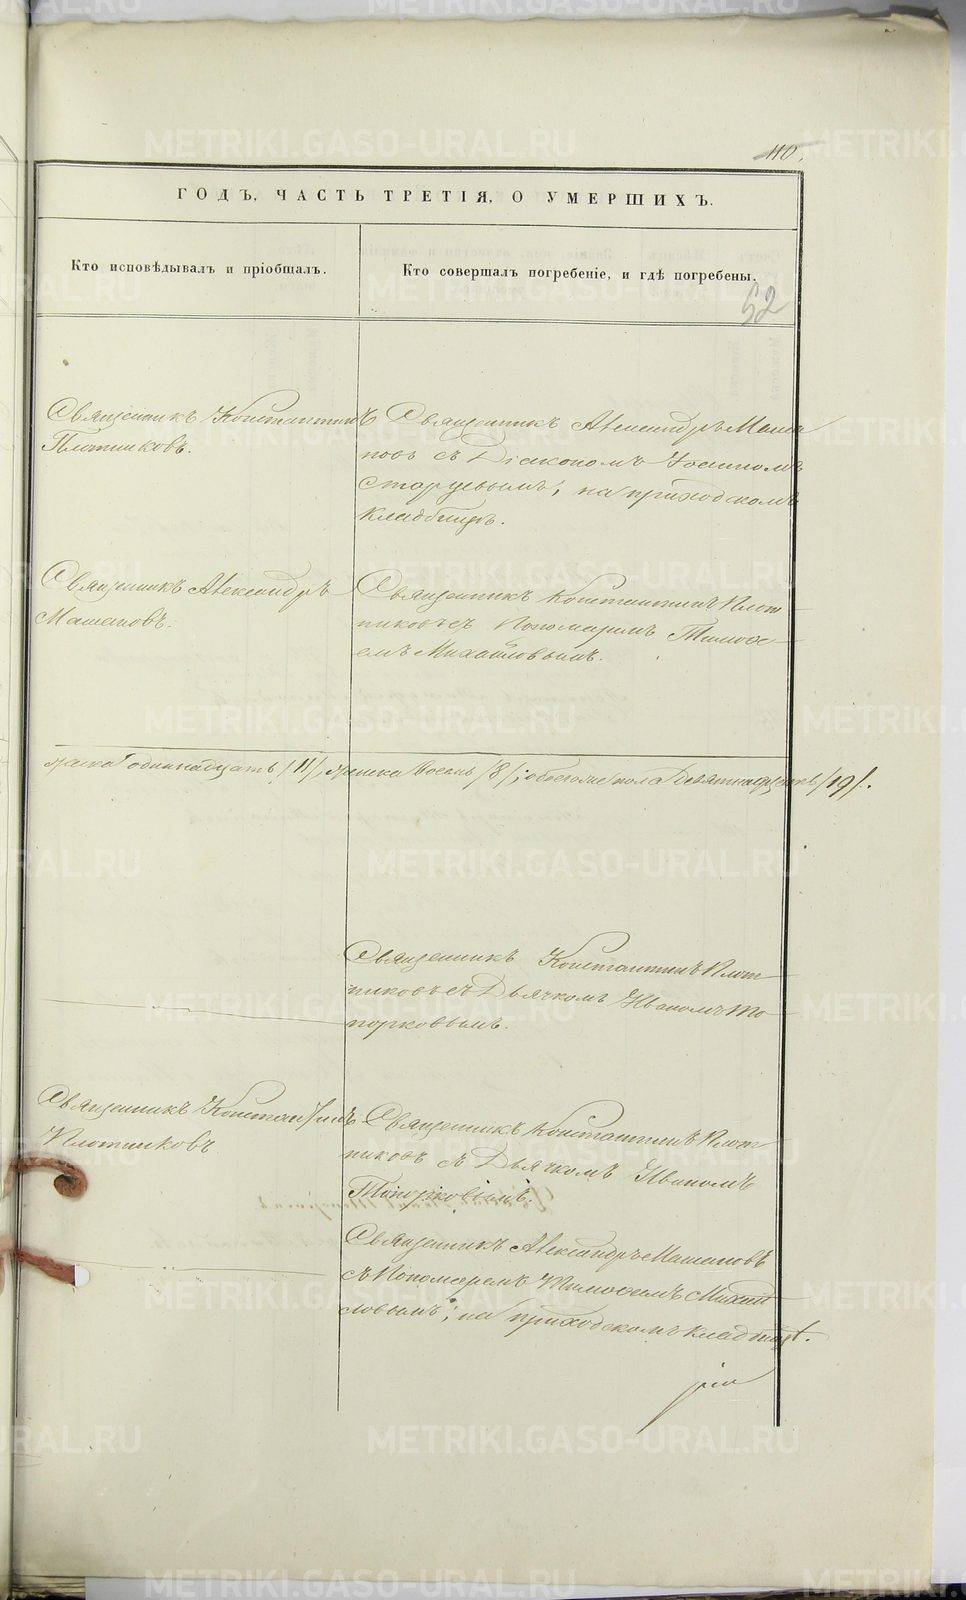 110.
ГОДЪ, ЧАСТЬ ТРЕТІЯ, О УМЕРШИХЪ.
Кто исповѣдывалъ и пріобщалъ.
Кто совершалъ погребеніе, и гдѣ погребены.
52
Священникъ Константинъ
Плотниковъ.
Священникъ Александръ Маша
новъ съ Діакономъ Іоанномъ
Старцевымъ, на приходскомъ
кладбищѣ.
Священникъ Александръ
Машановъ.
Священникъ Константинъ Плот
никовъ съ Пономаремъ Тимоѳе
емъ Михайловымъ.
одиннадцать /11/, женска восемь /8/; обоего пола девятнадцать /19/.
Священникъ Константинъ Плот
никовъ съ Дьячкомъ Иваномъ То
порковымъ.
Священникъ Константинъ
Плотниковъ
Священникъ Константинъ Плот
никовъ съ Дьячкомъ Иваномъ
Топорковымъ.
Священникъ Александръ Машановъ
съ Пономаремъ Тимоѳеемъ Михай
ловымъ; на приходскомъ кладбищѣ.
METRIKI.GASO-URAL.RU